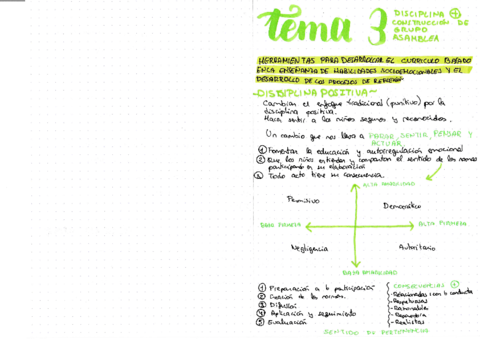 tema 3
DISCIPLINA +
CONSTRUCCIÓN DE
GRUPO
ASAMBLEA
HERRAMIENTAS PARA DESARROLLAR EL CURRICULO BASADO
EN LA ENSEÑANZA DE HABILIDADES SOCIOEMOCIONALES Y EL
DESARROLLO DE LOS PROCESOS DE
~DISCIPLINA POSITIVA~
Cambian el enfoque tradicional (punitivo) por la
disciplina positiva.
Hacer sentir a los niños seguros y reconocidos.
Un cambio que nos lleva a PARAR, SENTIR, PENSAR Y
ACTUAR.
① Fomentan la educación y autorregulación emocional
② Que los niños entiendan y compartan el sentido de las normas
participando en su elaboración
③ Todo acto tiene su consecuencia.
ALTA AMABILIDAD
Permisivo
Democrático
BAJA FIRMEZA
ALTA FIRMEZA
Negligencia
Autoritario
BAJA AMABILIDAD
① Preparación a la participación
② Creación de las normas.
③ Difusión
④ Aplicación y seguimiento
⑤ Evaluación
CONSECUENCIAS +
-Relacionadas con la conducta
-Respetuosas
-Razonables
-Reparadora
-Realistas
SENTIDO DE PERTENENCIA